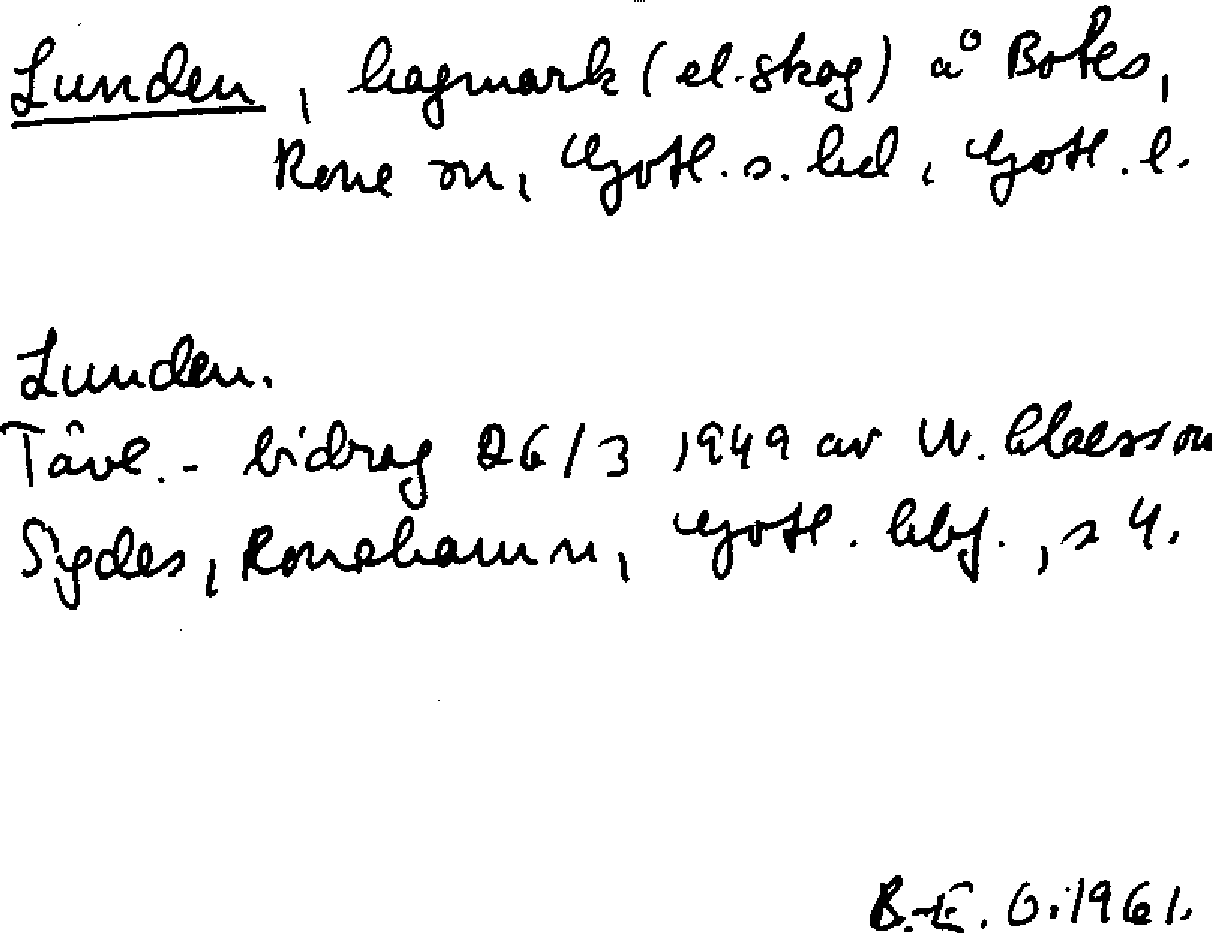 Lunden, hagmark (el. skog) å Botes,
Rone sn, Gotl. s. hd, Gotl. l.
Lunden.
Tävl.- bidrag 26/3 1949 av W. Claesson
Sigdes, Ronehamn, Gotl. hbf., s 4.
B.-E. O. 1961.